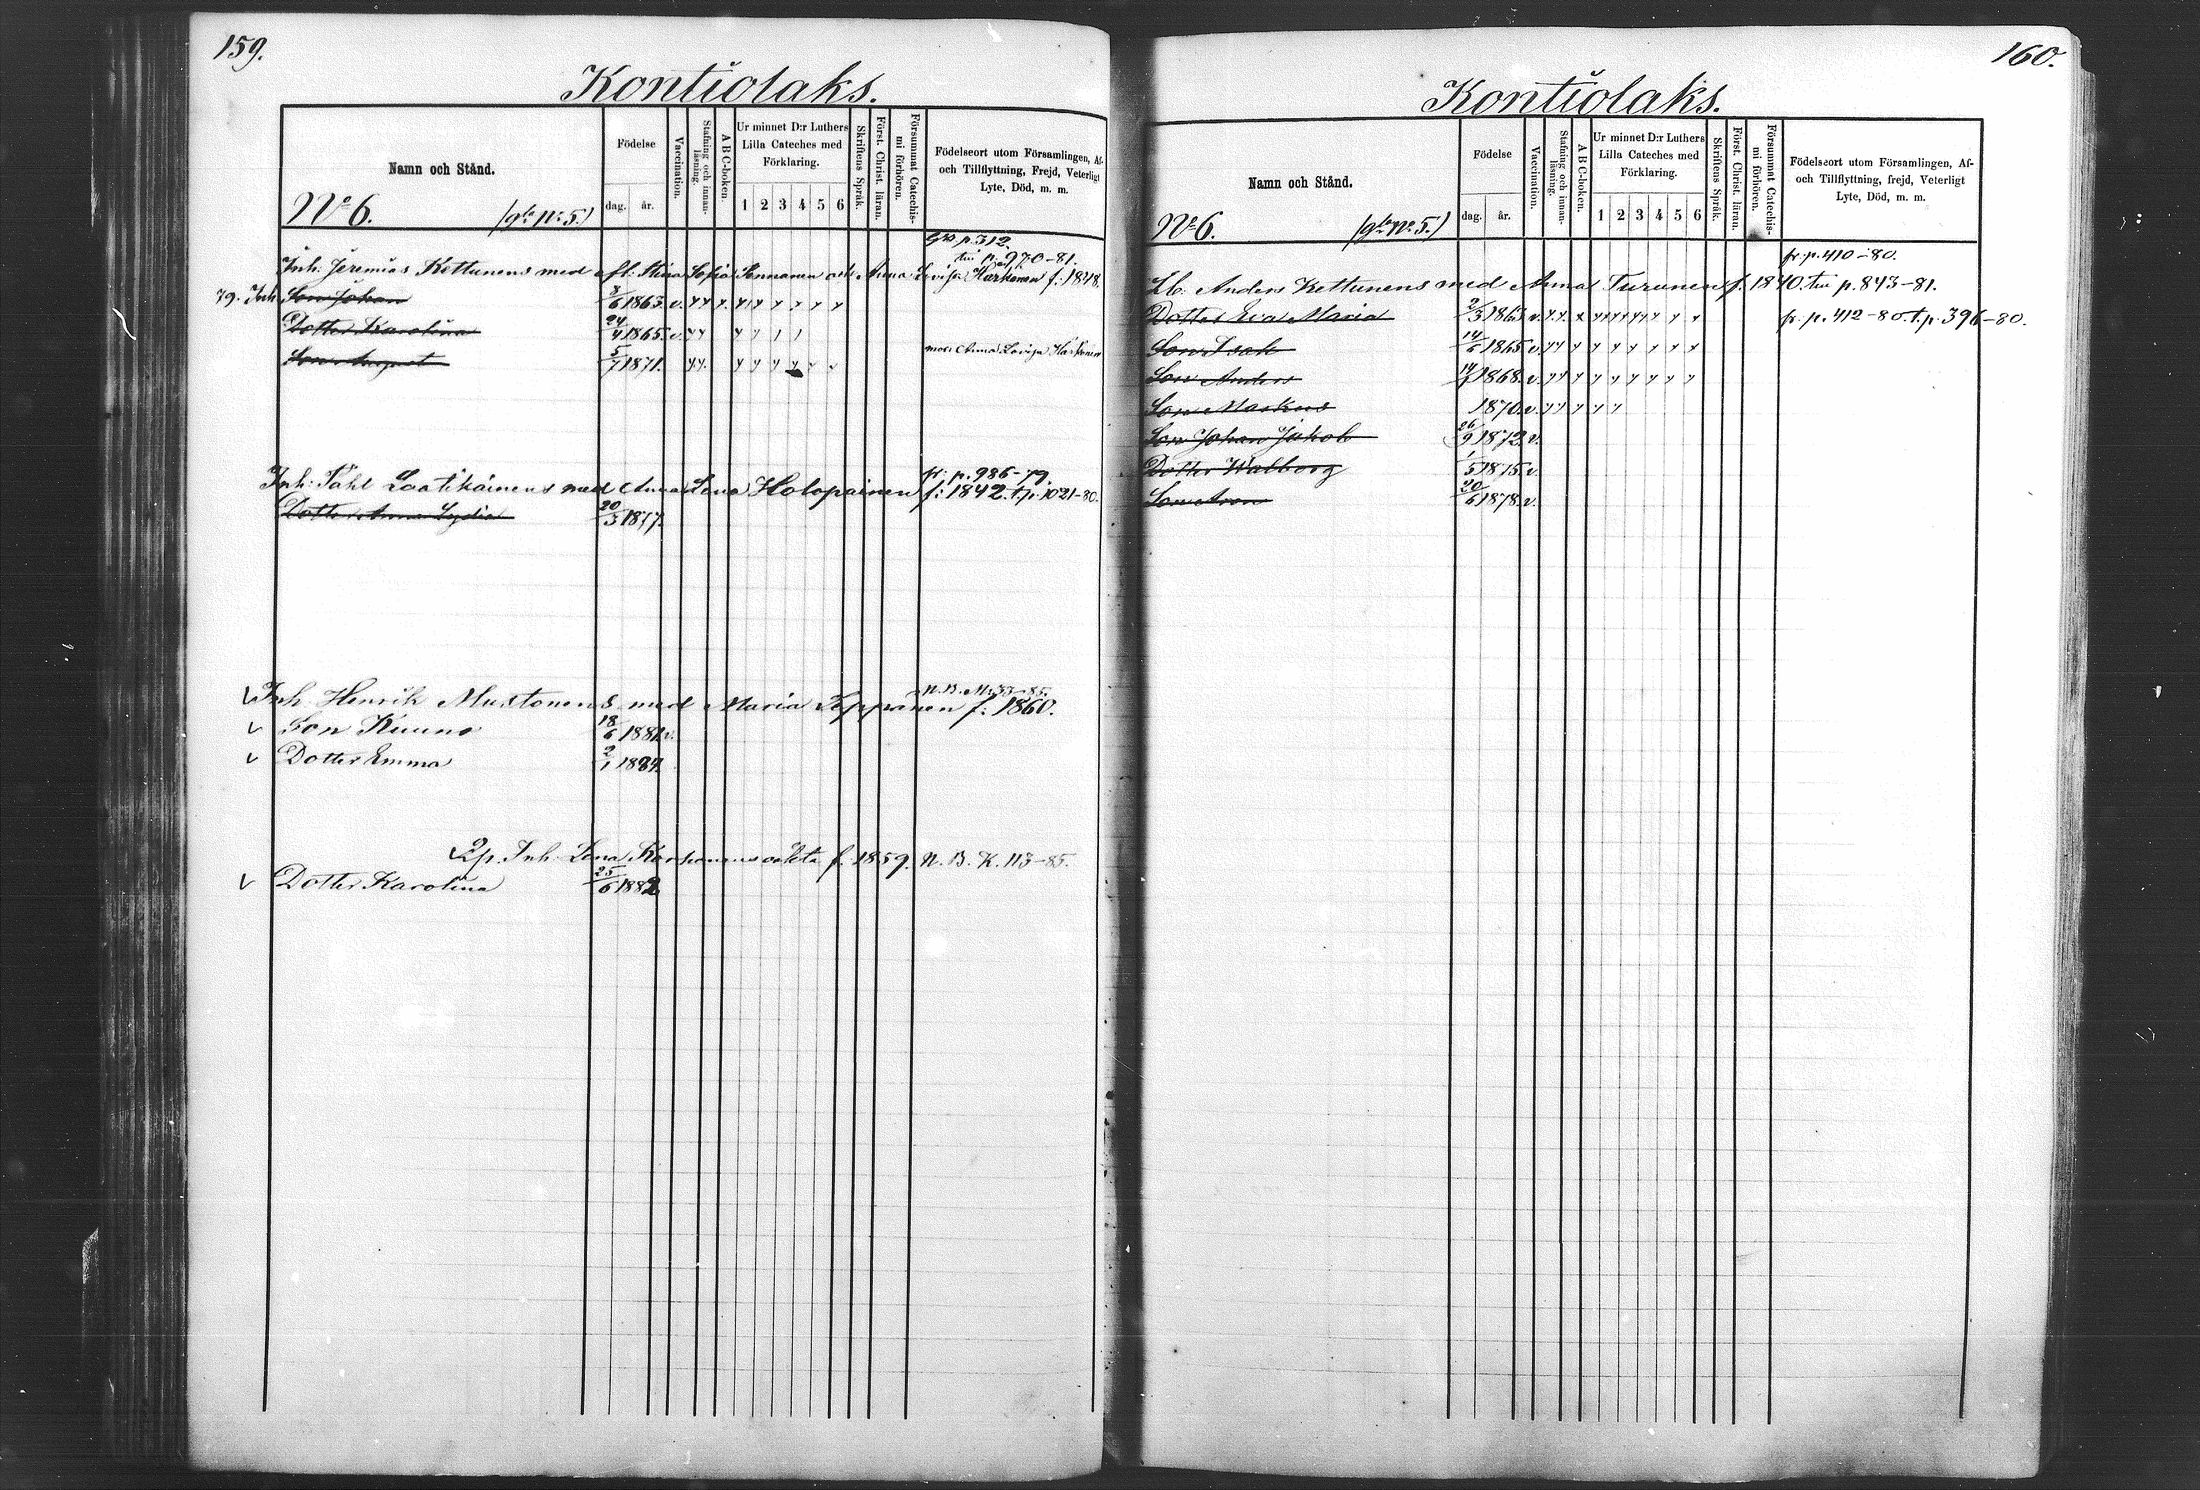 159.
Kontiolaks.
Namn och Stånd.
Födelse
dag.
år.
Vaccination.
Stafning och innanläsning.
A B C-boken.
Ur minnet D:r Luthers
Lilla Cateches med
Förklaring.
1 2 3 4 5 6
Skriftens Språk.
Först. Christ. läran.
Försummat Catechismi förhören.
Födelseort utom Församlingen, Af-
och Tillflyttning, Frejd, Veterligt
Lyte, Död, m. m.
No 6. (gla No 5.)
p. 312.
till p. 970-81.
Inh. Jeremias Kettunens med afl. Stina Sofia Pennanen och Anna Lovisa Härkönen f. 1848.
79. Inh. Son Johan 3/6 1863. v.
Dotter Karolina 24/4 1865. v.
Son August 5/7 1871. mor: Anna Lovisa Härkönen
fr. p. 986-79.
Inh. Påhl Laatikainens med Anna Lena Holopainen f. 1842. t. p. 1021-80.
Dotter Anna Lydia 20/3 1877.
N. B. M. 33-85.
v Inh. Henrik Mustonens med Maria Leppänen f. 1860.
v Son Kuuno 18/6 1881. v.
v Dotter Emma 2/1 1884.
Inh. Lena f. 1859. N. B. K. 113-85.
v Dotter Karolina 25/6 1882
160.
Kontiolaks.
Namn och Stånd.
Födelse
dag.
år.
Vaccination.
Stafning och innanläsning.
A B C-boken.
Ur minnet D:r Luthers
Lilla Cateches med
Förklaring.
1 2 3 4 5 6
Skriftens Språk.
Först. Christ. läran.
Försummat Catechismi förhören.
Födelseort utom Församlingen, Af-
och Tillflyttning, frejd, Veterligt
Lyte, Död, m. m.
No 6. (gla No 5.)
fr. p. 410-80.
Lb. Anders Kettunens med Anna Turunen f. 1840. till p. 843-81.
Dotter Eva Maria 2/3 1863 v. fr. p. 412-80. t. p. 396-80.
Son Isak 14/6 1865 v.
Son Anders 1868. v.
Son Markus 1870. v.
Son Johan Jakob 26/9 1872. v.
Dotter Walborg 1/5 1875 v.
Son Aron 20/6 1878. v.